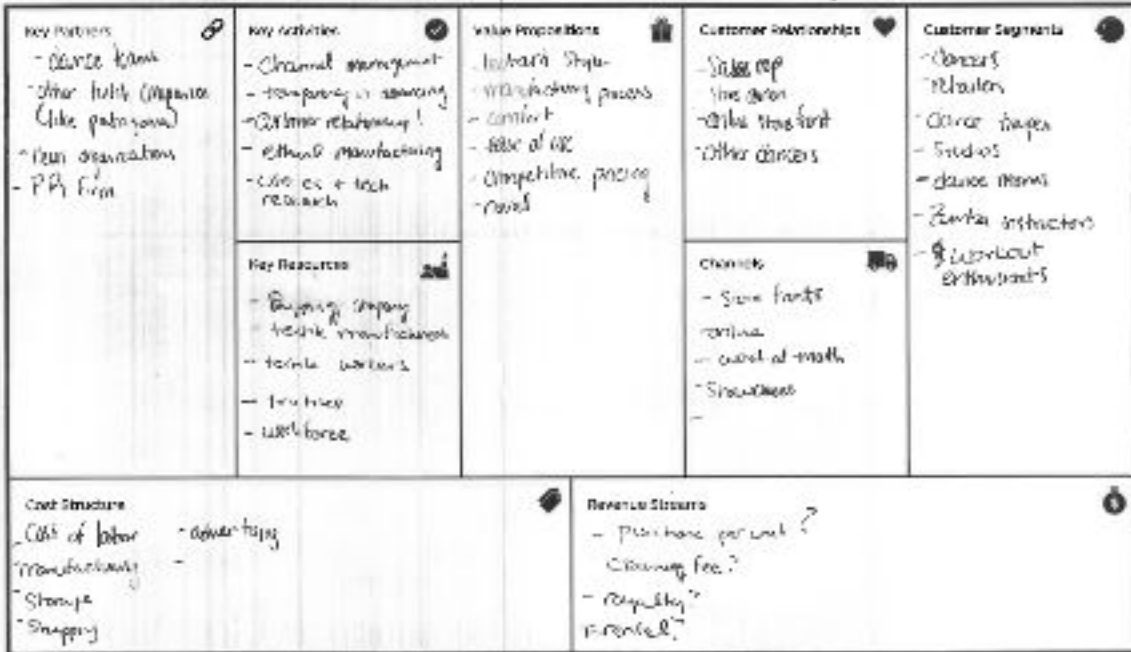 Key Partners
- dance teams
- other textile companies
(like patagonia)
- organizations
- PR firm
Key Activities
- Channel management
- transparency in sourcing
- Customer relationship!
- ethical manufacturing
- + tech
research
Key Resources
- company
- textile manufacturers
- textile workers
- textiles
- workforce
Value Propositions
- Style
- manufacturing process
- comfort
- ease of use
- competitive pricing
- novel
Customer Relationships
- Sales rep
- online store front
- Other dancers
Channels
- Store fronts
- online
- word of mouth
- Showcases
-
Customer Segments
- dancers
- retailers
- dance troupes
- Studios
- dance moms
- Zumba instructors
- workout
enthusiasts
Cost Structure
- Cost of labor
- manufacturing
- Storage
- Shipping
- advertising
-
Revenue Streams
- Purchase per unit?
- Cleaning fee?
- royalty?
- rental?